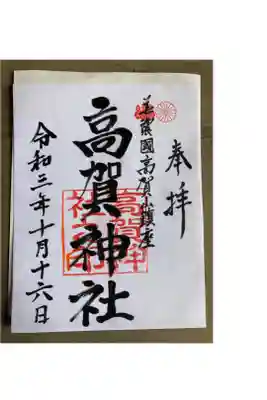 奉拝
美濃國高賀山鎮座
高賀神社
令和三年十月十六日